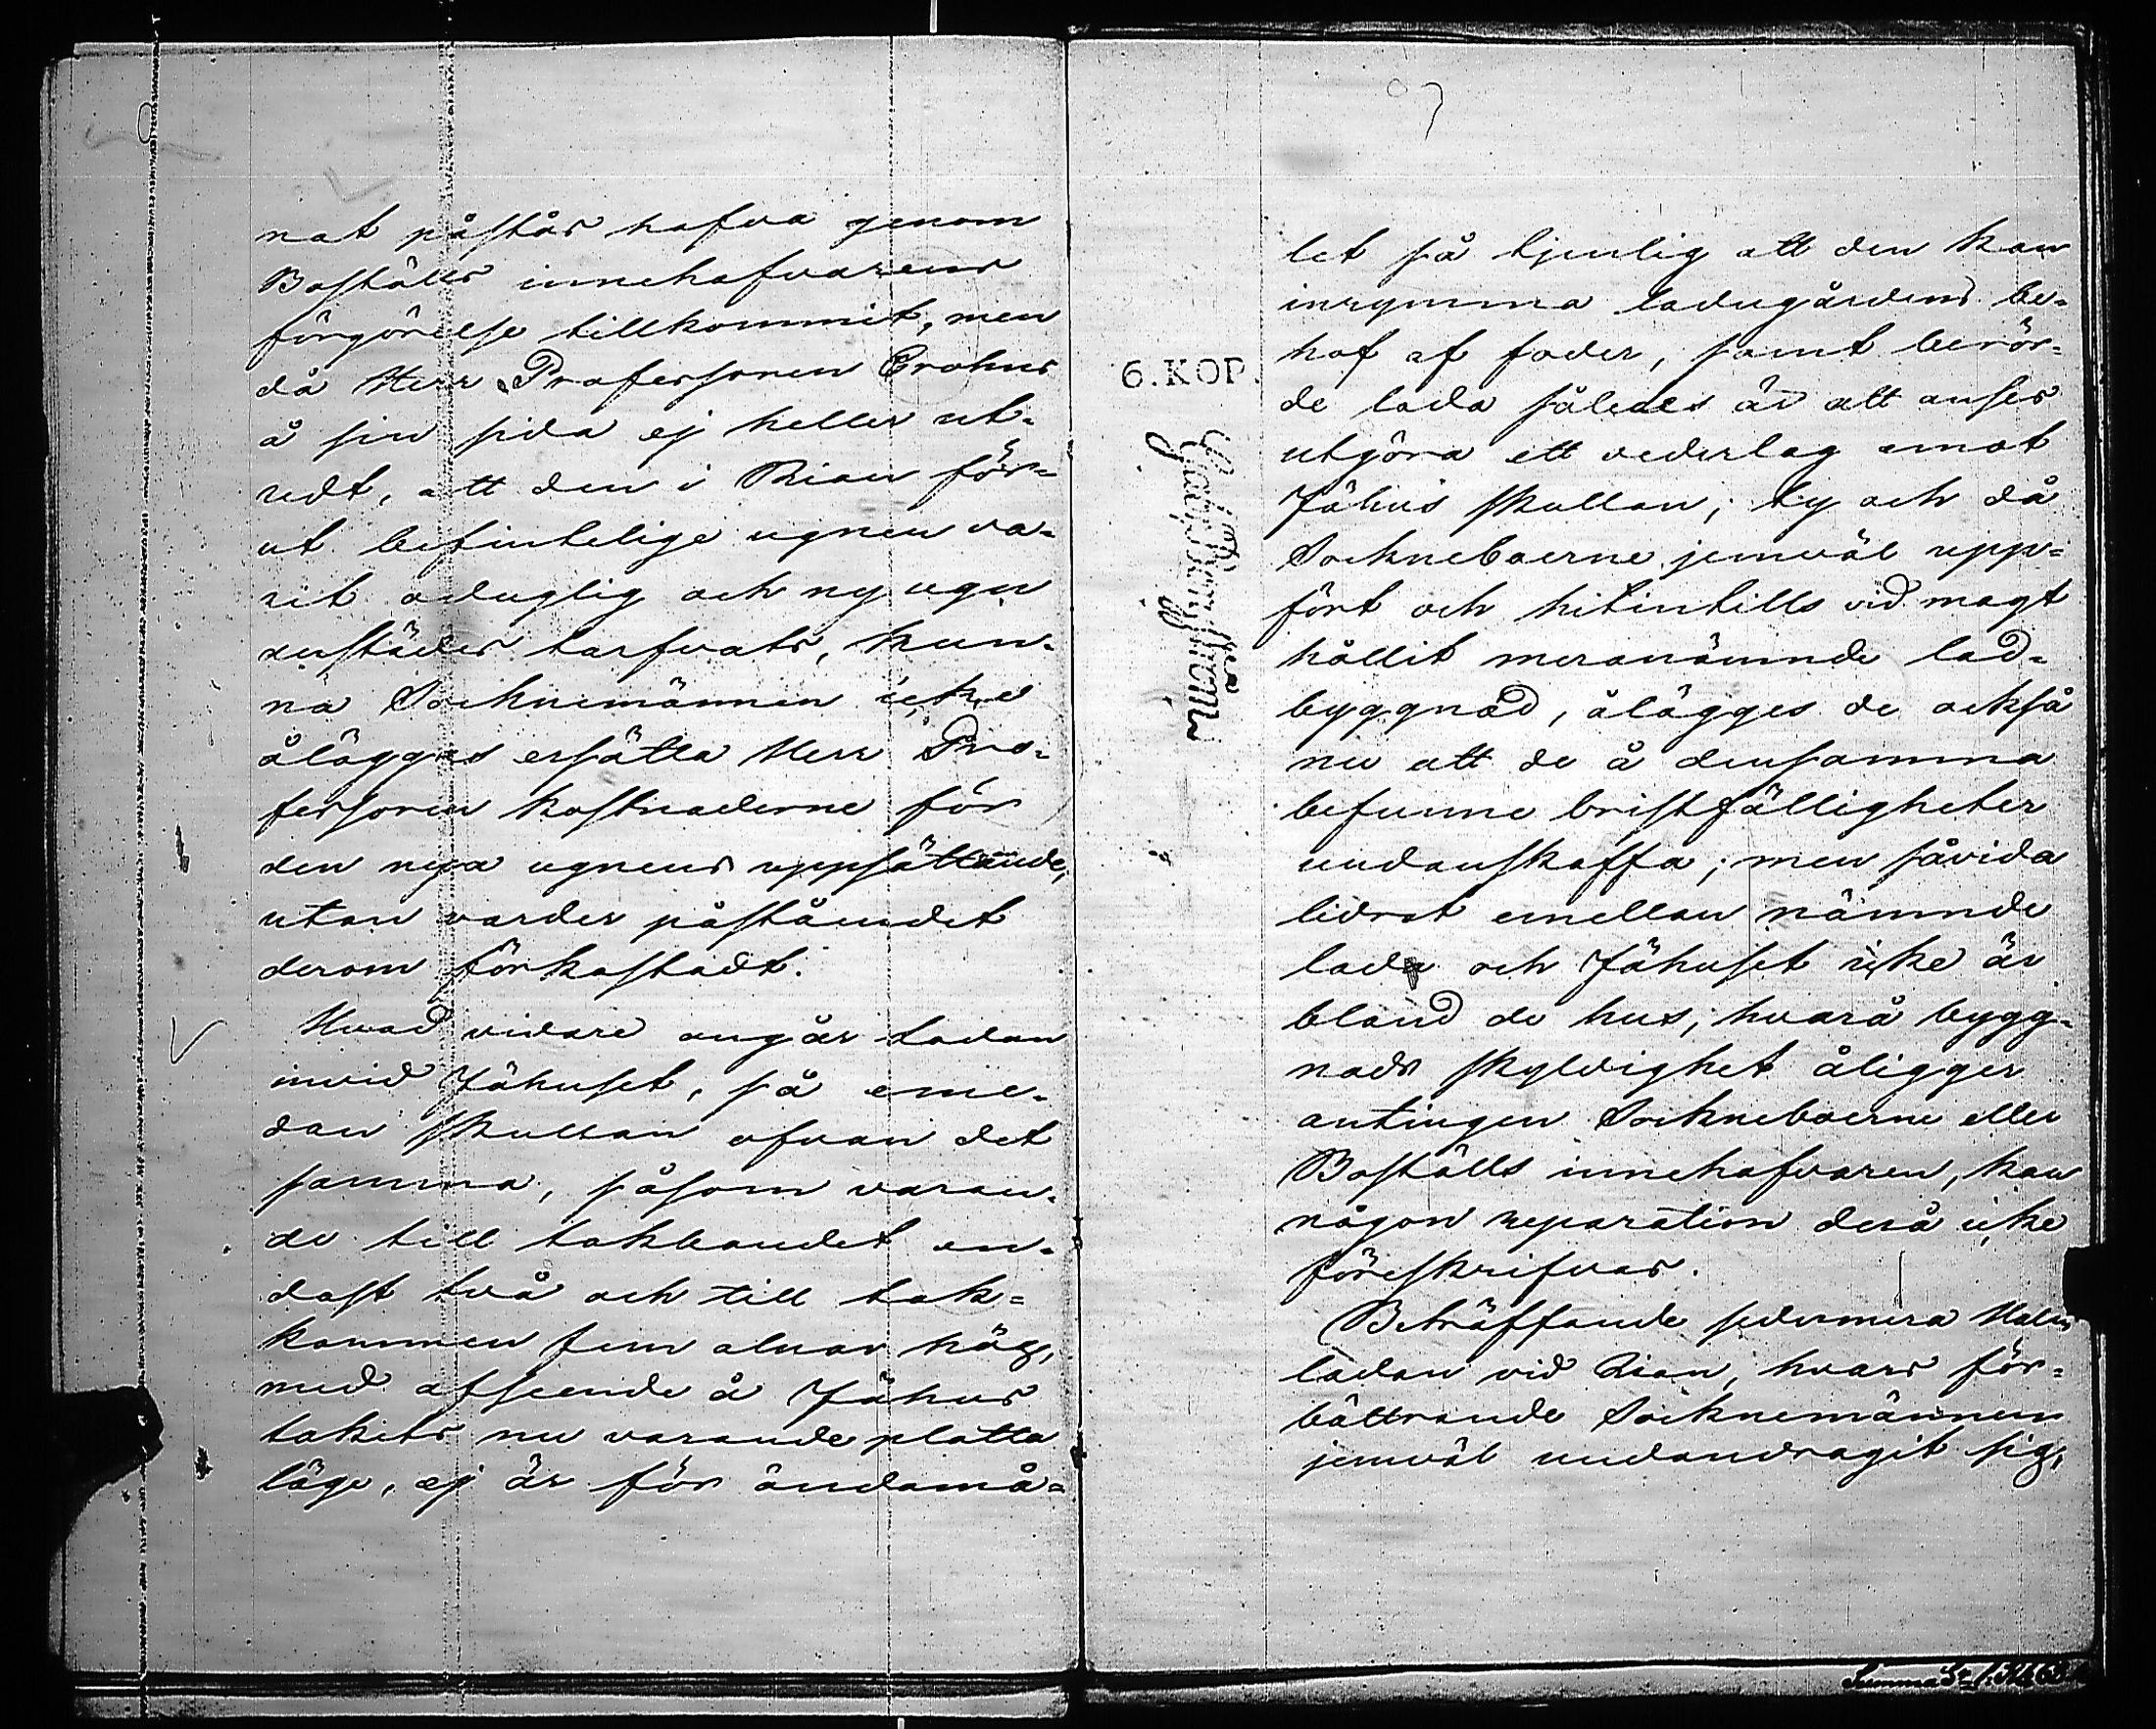 nat påstås hafva genom
Boställs innehafvarens
förgörelse tillkommit, men
då Herr Professoren Crohns
å sin sida ej heller ut-
redt, att den i Rian för-
ut befintelige ugnen va-
rit oduglig och ny ugn
derstädes tarfvats, kun-
na Socknemännen icke
åläggas ersätta Herr Pro-
fessoren kostnaderne för
den nya ugnens uppsättande,
utan varder påståendet
derom förkastadt.
Hvad vidare angår Ladan
invid Fähuset, så eme-
dan skullan ofvan det
samma, såsom varan-
de till takbandet en-
dast två och till tak-
kammen fem alnar hög,
med afseende å Fähus
takets nu varande platta
läge, ej är för ändamå-
7
let så tjenlig att den kan
inrymma ladugårdens be-
hof af foder, samt berör-
de lada således är att anses
utgöra ett vederlag emot
Fähus skullan; ty och då
Sockneboerne jemväl upp-
fört och hitintills vid magt
hållit meranämnde lad-
byggnad, älägges de också
nu att de å densamma
befunne bristfälligheter
undanskaffa; men såvida
lidret emellan nämnde
lada och Fähuset icke är
bland de hus, hvarå bygg-
nads skyldighet åligger
antingen Sockneboerne eller
Boställs innehafvaren, kan
någon reparation derå icke
föreskrifvas.
Beträffande sedermera Halm
ladan vid Rian, hvars för-
bättrande Socknemännen
jemväl undandragit sig,
6. KOP.